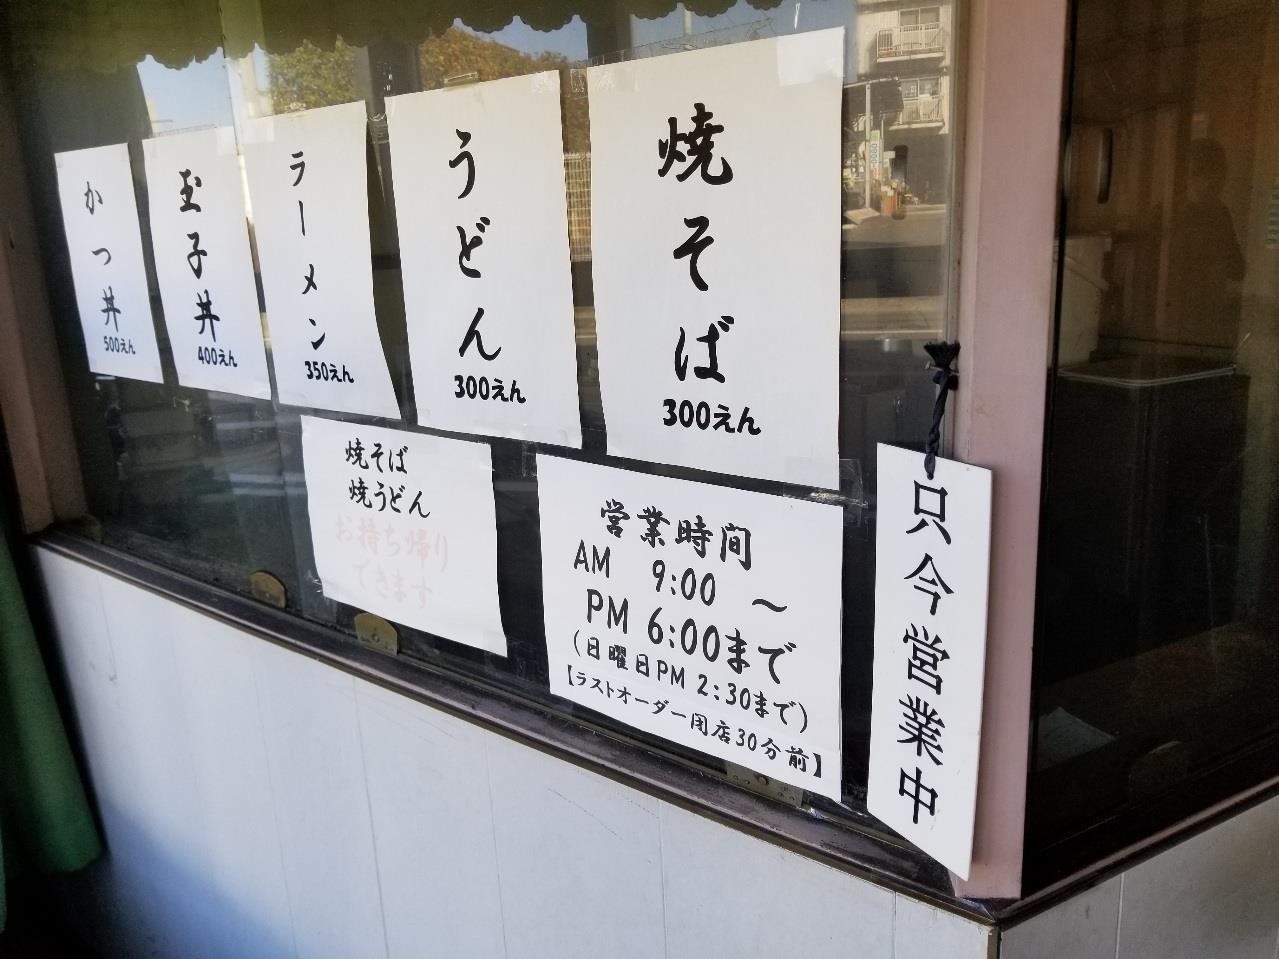 焼そば
300えん
うどん
300えん
ラーメン
350えん
玉子丼
400えん
かつ丼
500えん
焼そば
焼うどん
お持ち帰り
できます
営業時間
AM 9:00 ～
PM 6:00まで
(日曜日PM 2:30まで)
【ラストオーダー閉店30分前】
只今営業中